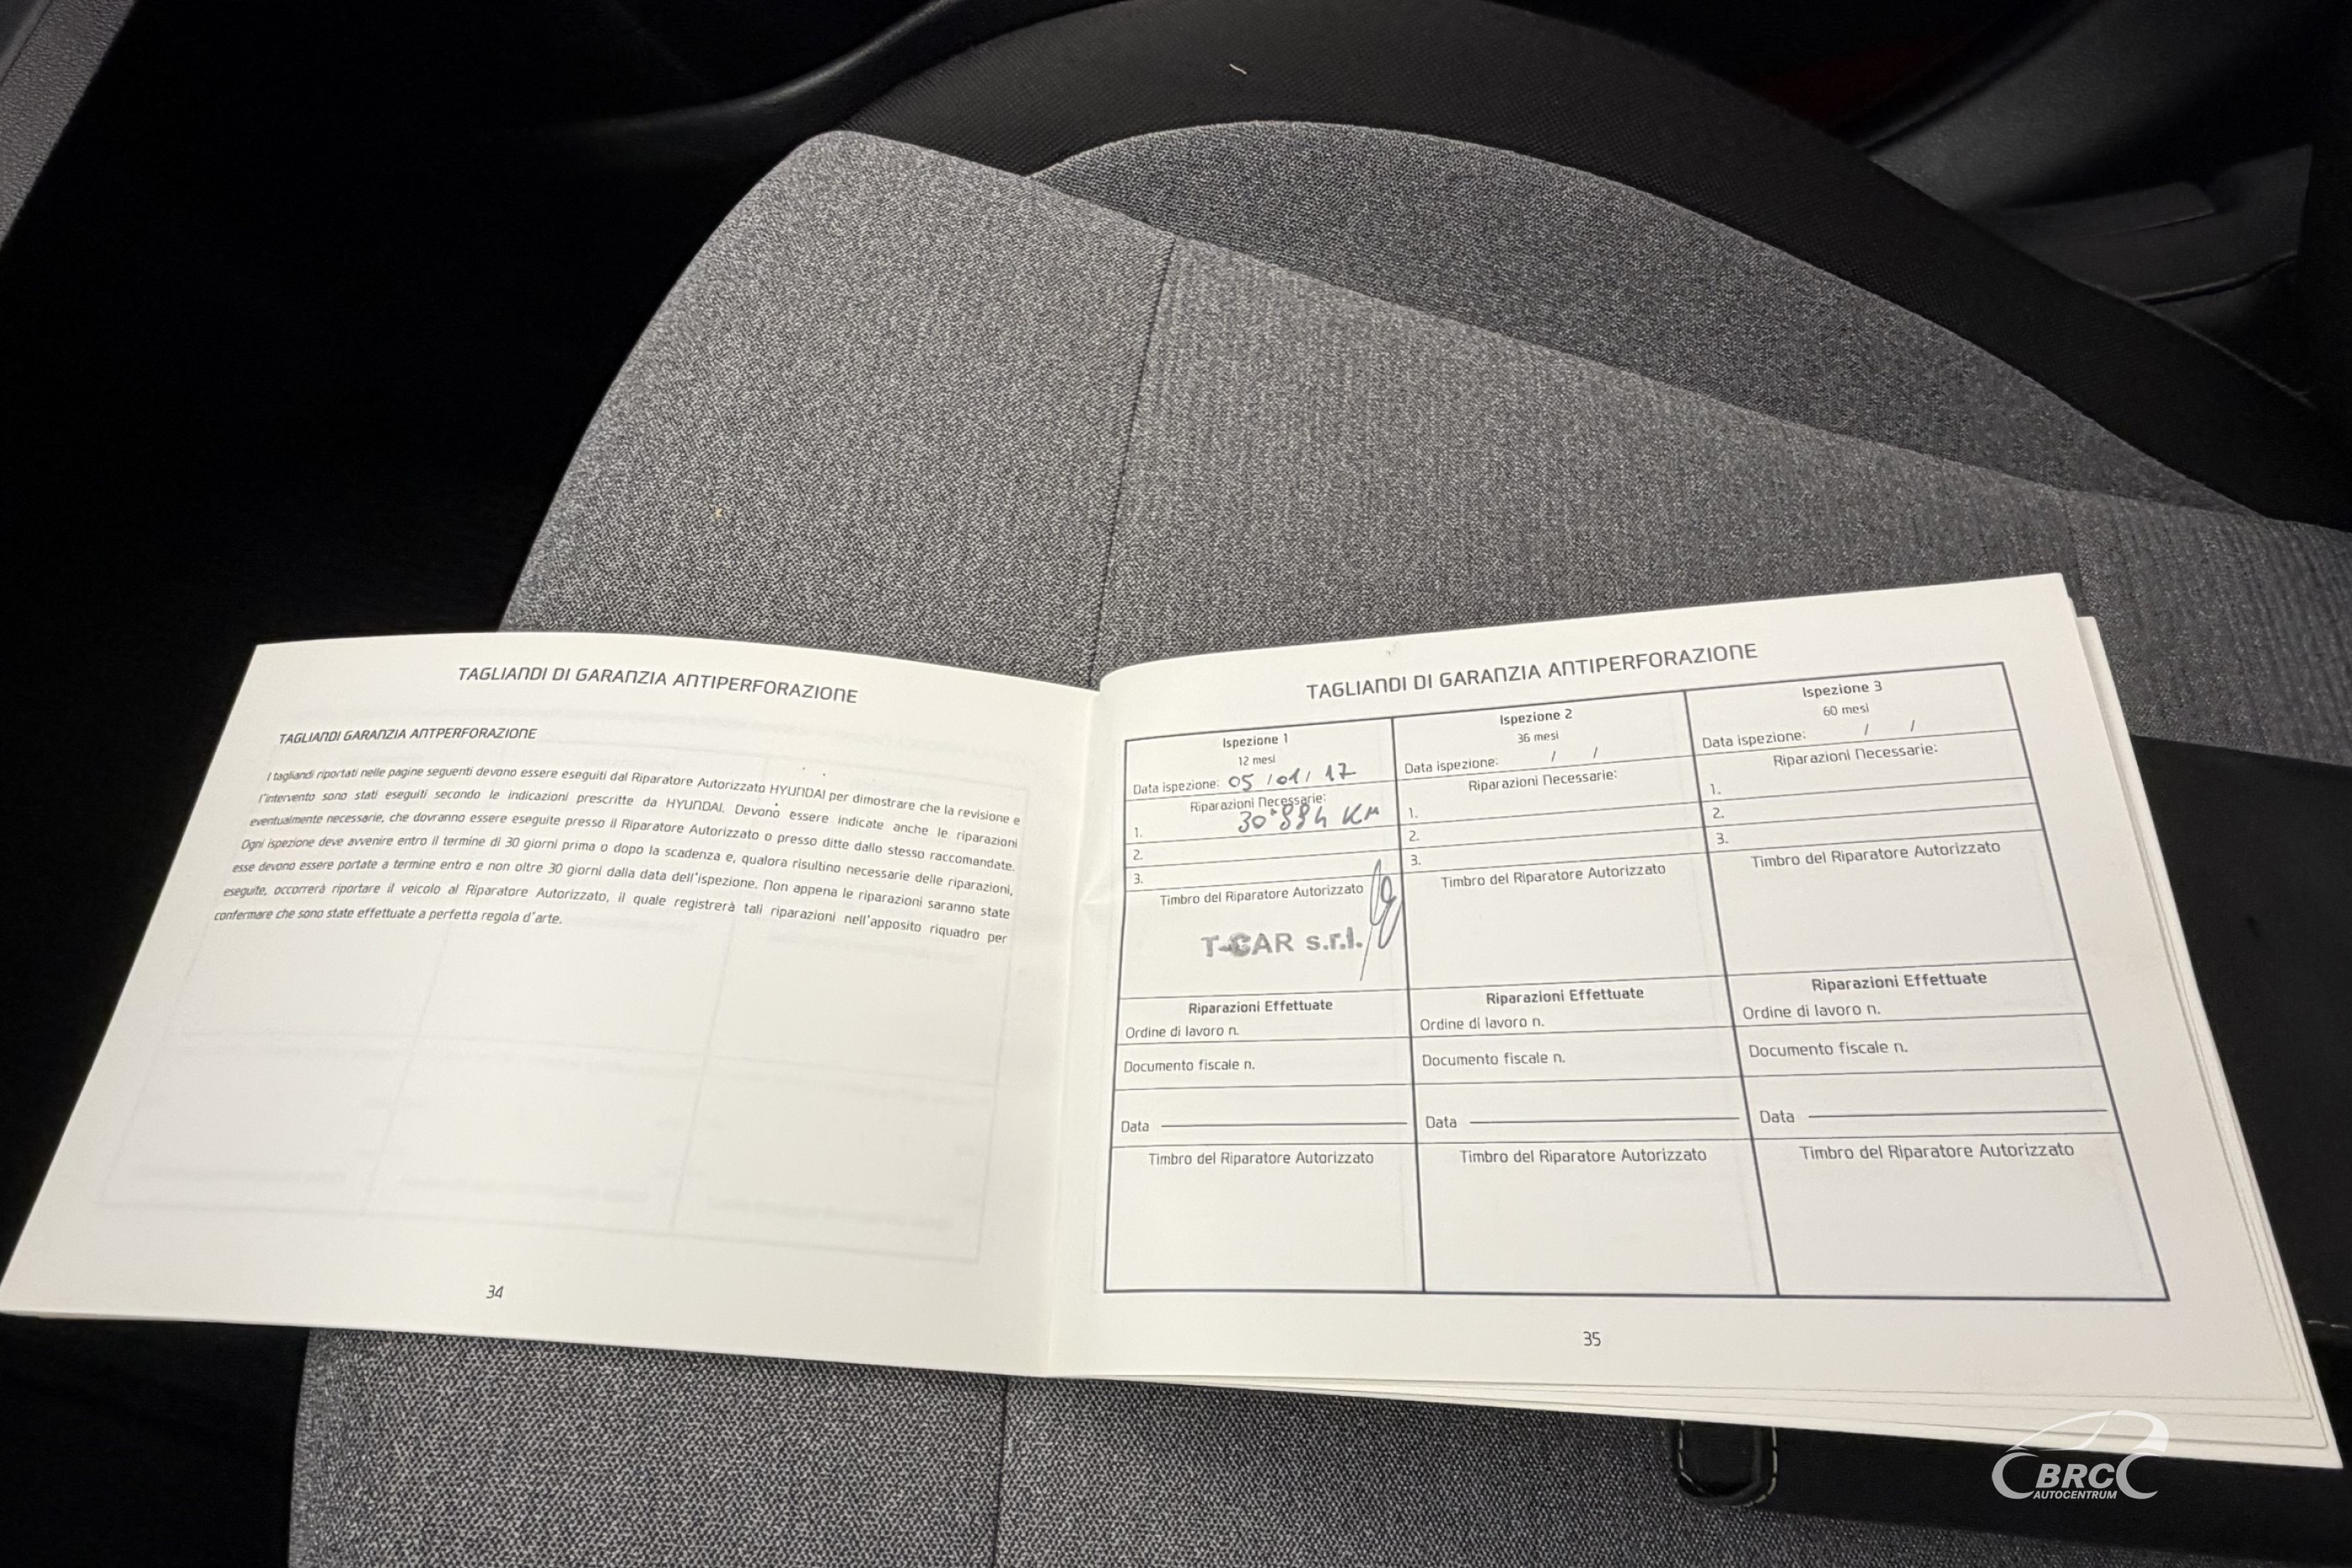 TAGLIANDI DI GARANZIA ANTIPERFORAZIONE
TAGLIANDI GARANZIA ANTPERFORAZIONE
I tagliandi riportati nelle pagine seguenti devono essere eseguiti dal Riparatore Autorizzato HYUNDAI per dimostrare che la revisione e
l'intervento sono stati eseguiti secondo le indicazioni prescritte da HYUNDAI. Devono essere indicate anche le riparazioni
eventualmente necessarie, che dovranno essere eseguite presso il Riparatore Autorizzato o presso ditte dallo stesso raccomandate.
Ogni ispezione deve avvenire entro il termine di 30 giorni prima o dopo la scadenza e, qualora risultino necessarie delle riparazioni,
esse devono essere portate a termine entro e non oltre 30 giorni dalla data dell'ispezione. Non appena le riparazioni saranno state
eseguite, occorrerà riportare il veicolo al Riparatore Autorizzato, il quale registrerà tali riparazioni nell'apposito riquadro per
confermare che sono state effettuate a perfetta regola d'arte.
34
TAGLIANDI DI GARANZIA ANTIPERFORAZIONE
Ispezione 1
12 mesi
Data ispezione: 05 / 01 / 17
Riparazioni Necessarie:
1. 30.884 KM
2.
3.
Timbro del Riparatore Autorizzato
T-CAR s.r.l.
Riparazioni Effettuate
Ordine di lavoro n.
Documento fiscale n.
Data
Timbro del Riparatore Autorizzato
Ispezione 2
36 mesi
Data ispezione: / /
Riparazioni Necessarie:
1.
2.
3.
Timbro del Riparatore Autorizzato
Riparazioni Effettuate
Ordine di lavoro n.
Documento fiscale n.
Data
Timbro del Riparatore Autorizzato
Ispezione 3
60 mesi
Data ispezione: / /
Riparazioni Necessarie:
1.
2.
3.
Timbro del Riparatore Autorizzato
Riparazioni Effettuate
Ordine di lavoro n.
Documento fiscale n.
Data
Timbro del Riparatore Autorizzato
35
BRC
AUTOCENTRUM